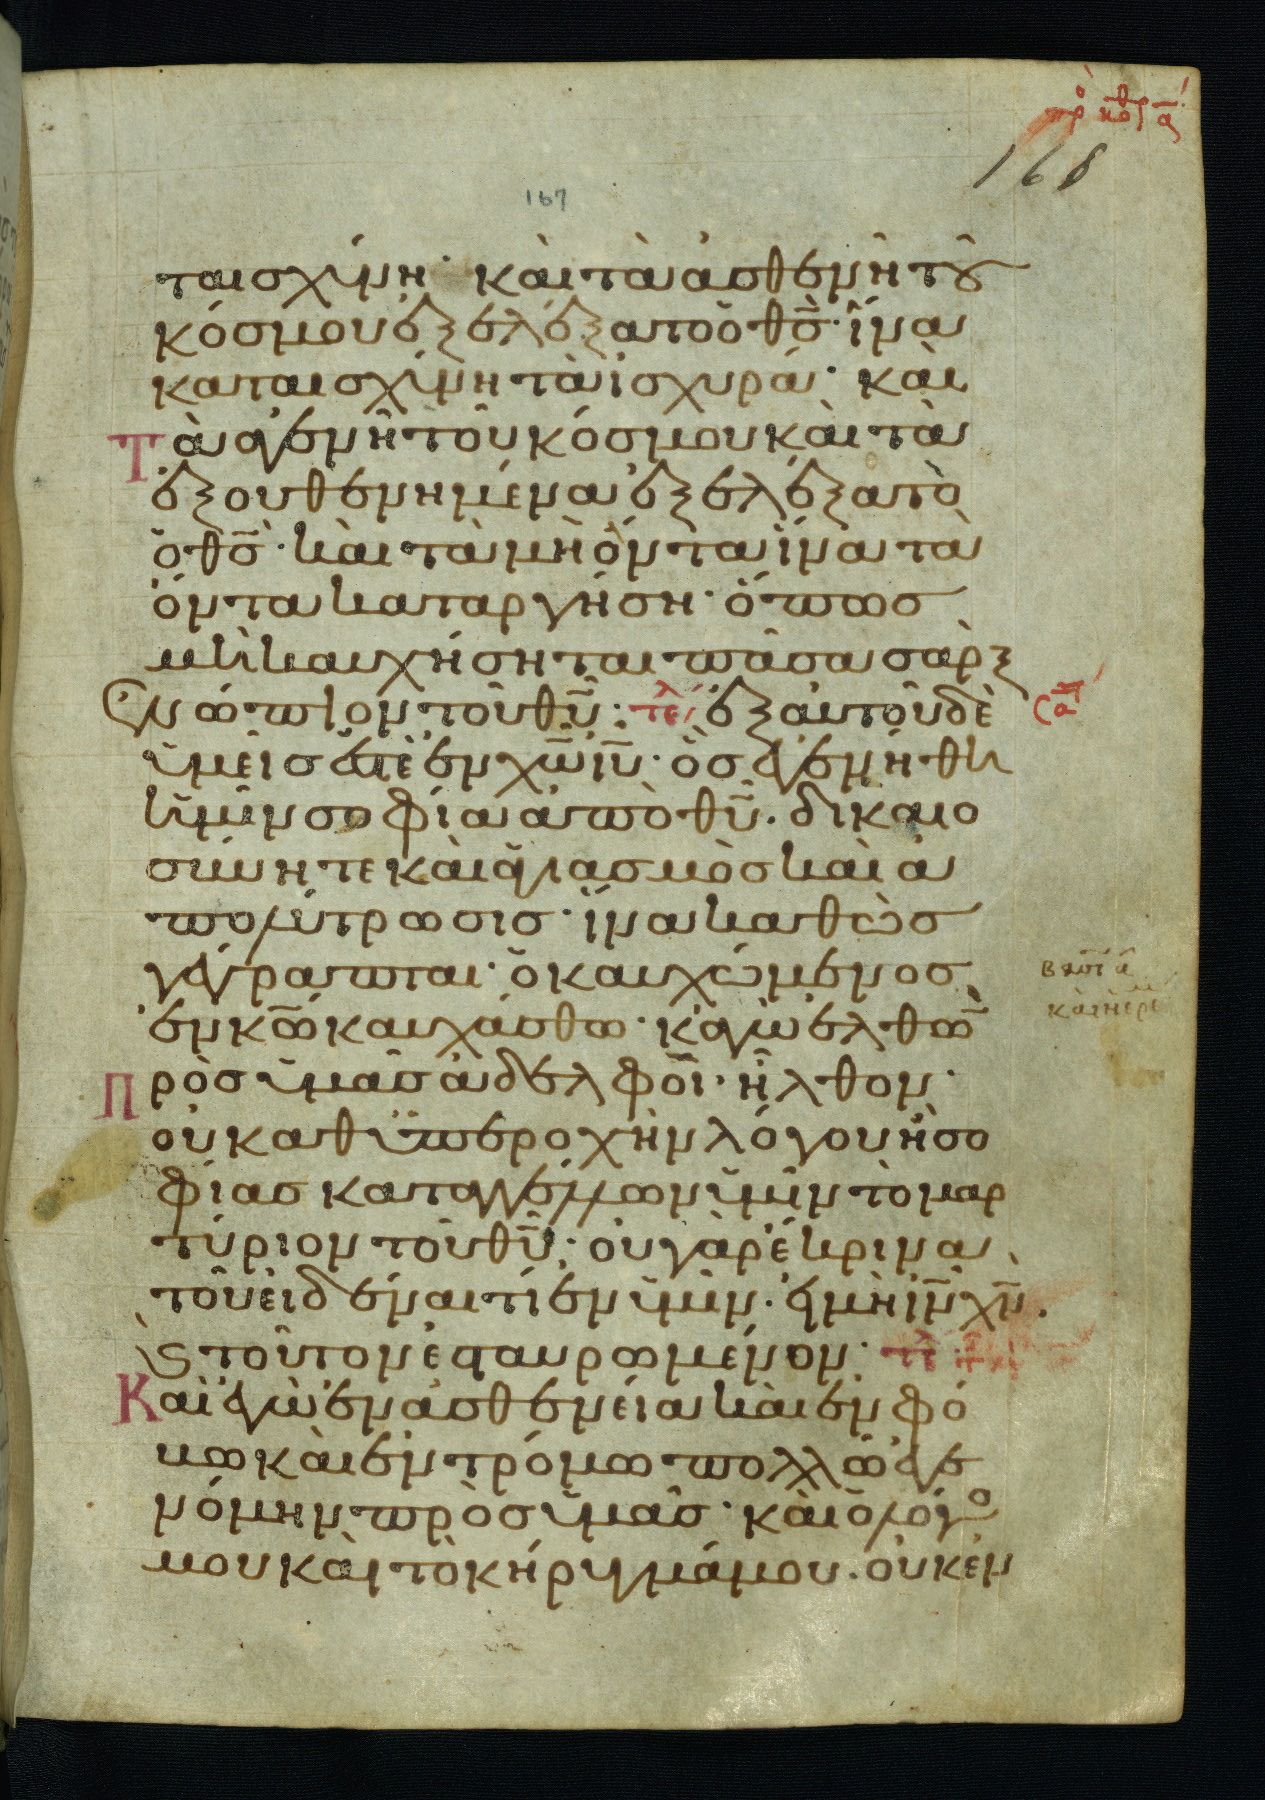 πρὸς κορ α
168
167
ταισχύνη· καὶ τὰ ἀσθενῆ τοῦ
κόσμου ἐξελέξατο ὁ θς̅· ἵνα
καταισχύνη τὰ ἰσχυρά· καὶ
τὰ ἀγενῆ τοῦ κόσμου καὶ τὰ
ἐξουθενημένα ἐξελέξατο
ὁ θς̅· καὶ τὰ μὴ ὄντα ἵνα τὰ
ὄντα καταργήση· ὅπως
μὴ καυχήσηται πᾶσα σὰρξ
ἐνώπιον τοῦ θυ̅· τελ ἐξ αὐτοῦ δὲ
ὑμεῖς ἐστὲ ἐν χω̅ ιυ̅· ὃς ἐγενήθη
ἡμῖν σοφία ἀπὸ θυ̅. δικαιο
σύνη τε καὶ ἁγιασμὸς καὶ ἀ
πολύτρωσις· ἵνα καθὼς
γέγραπται· ὁ καυχώμενος
ἐν κω̅ καυχάσθω· κἀγὼ ἐλθὼν
πρὸς ὑμᾶς ἀδελφοὶ· ἦλθον·
οὐ καθ ὑπεροχὴν λόγου ἢ σο
φίας καταγγέλλων ὑμῖν τὸ μαρ
τύριον τοῦ θυ̅· οὐ γὰρ ἔκρινα
τοῦ εἰδέναι τί ἐν ὑμῖν· εἰ μὴ ιν̅ χν̅.
καὶ τοῦτον ἐσταυρωμένον· τελ
Καὶ ἐγὼ ἐν ἀσθενεία καὶ ἐν φό
βω καὶ ἐν τρόμω πολλῶ ἐγε
νόμην πρὸς ὑμᾶς· καὶ ὁ λόγο
μου καὶ τὸ κήρυγμά μου. οὐκ ἐν